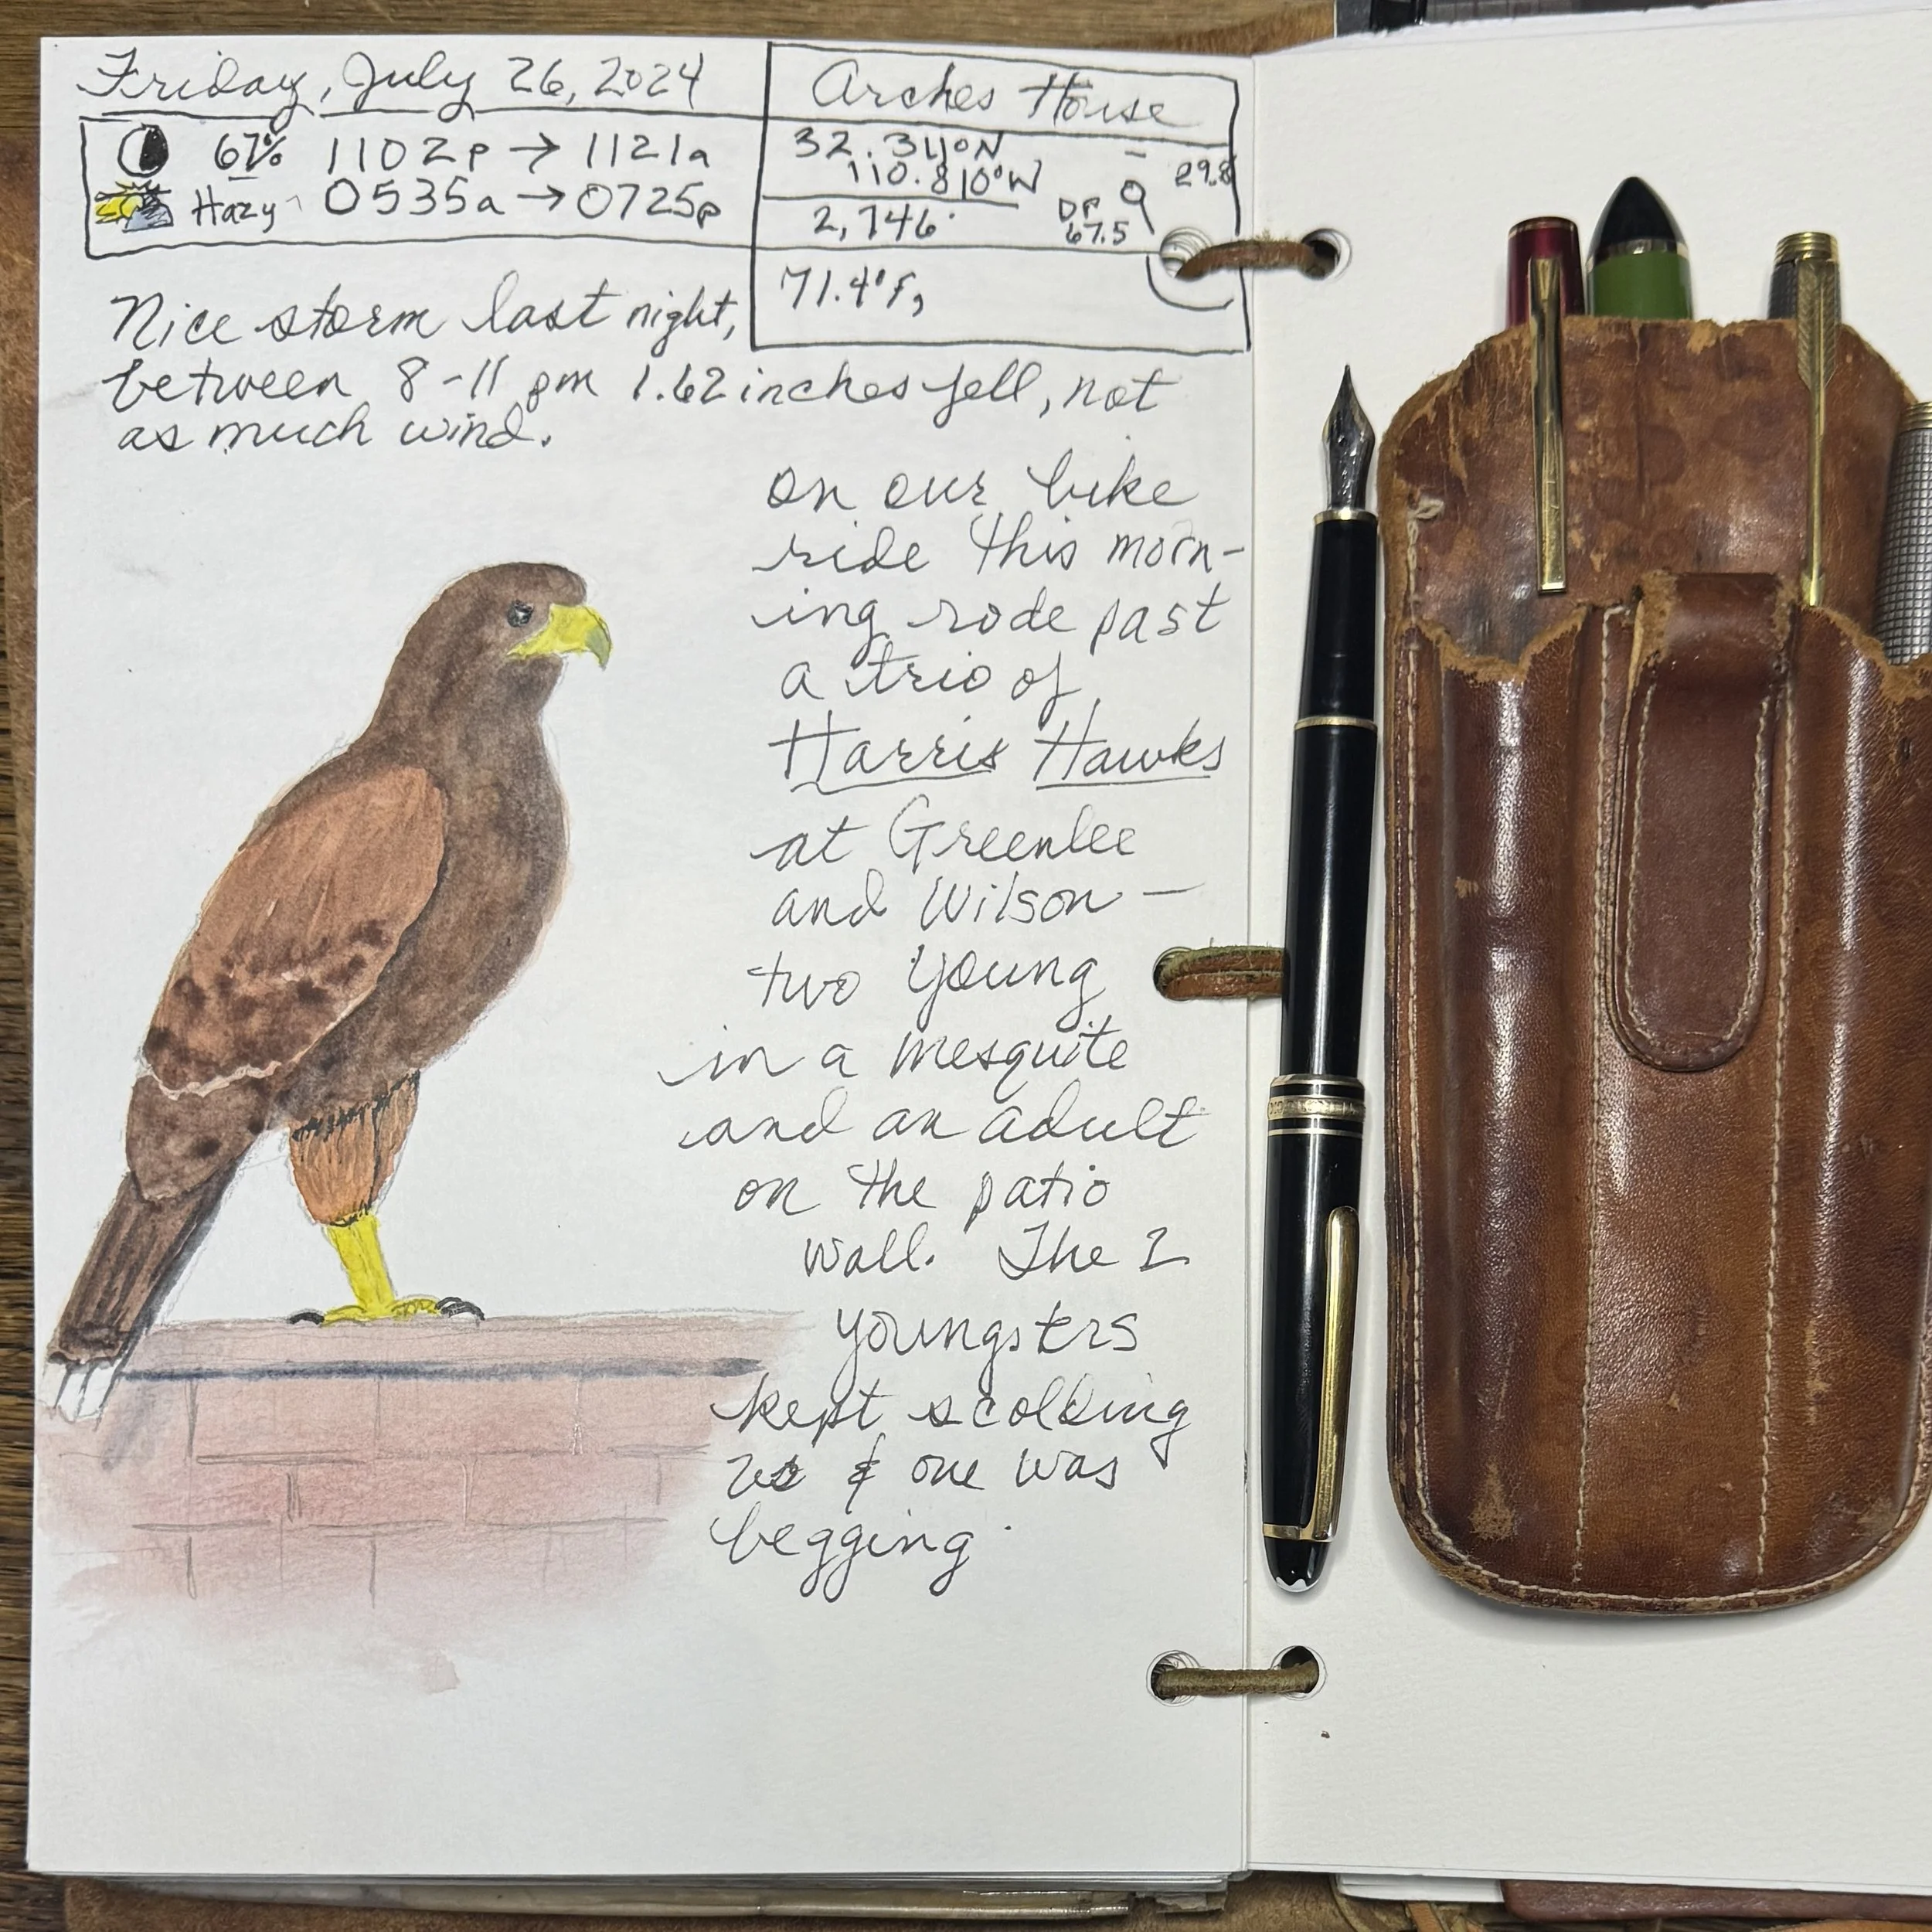 Friday, July 26, 2024
67% 1102p → 1121a
Hazy 0535a → 0725p
Arches House
32.311°N
110.810°W
29.8
2,746'
DP
67.5
71.4°F,
Nice storm last night,
between 8-11 pm 1.62 inches fell, not
as much wind.
on our bike
ride this morn-
ing rode past
a trio of
Harris Hawks
at Greenlee
and Wilson —
two young
in a mesquite
and an adult
on the patio
wall. The 2
youngsters
kept scolding
us & one was
begging.